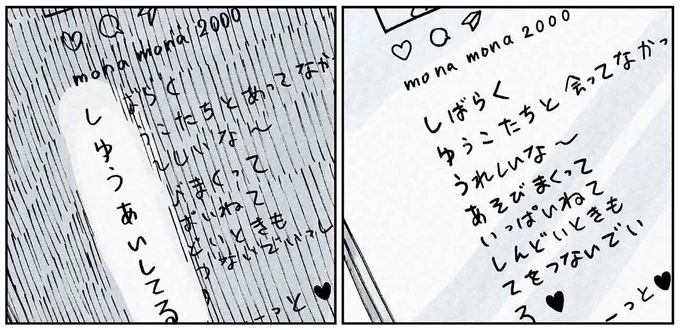 mona mona 2000
しばらく
ゆうこたちと会ってなかっ
うれしいな〜
あそびまくって
いっぱいねて
しんどいときも
てをつないでい
る♥ーっと♥
mona mona 2000
ばらく
うこたちとあってなか
しいな〜
びまくって
ぱいねて
どいときも
つないでいっし
ーっと♥
しゆうあいしてる